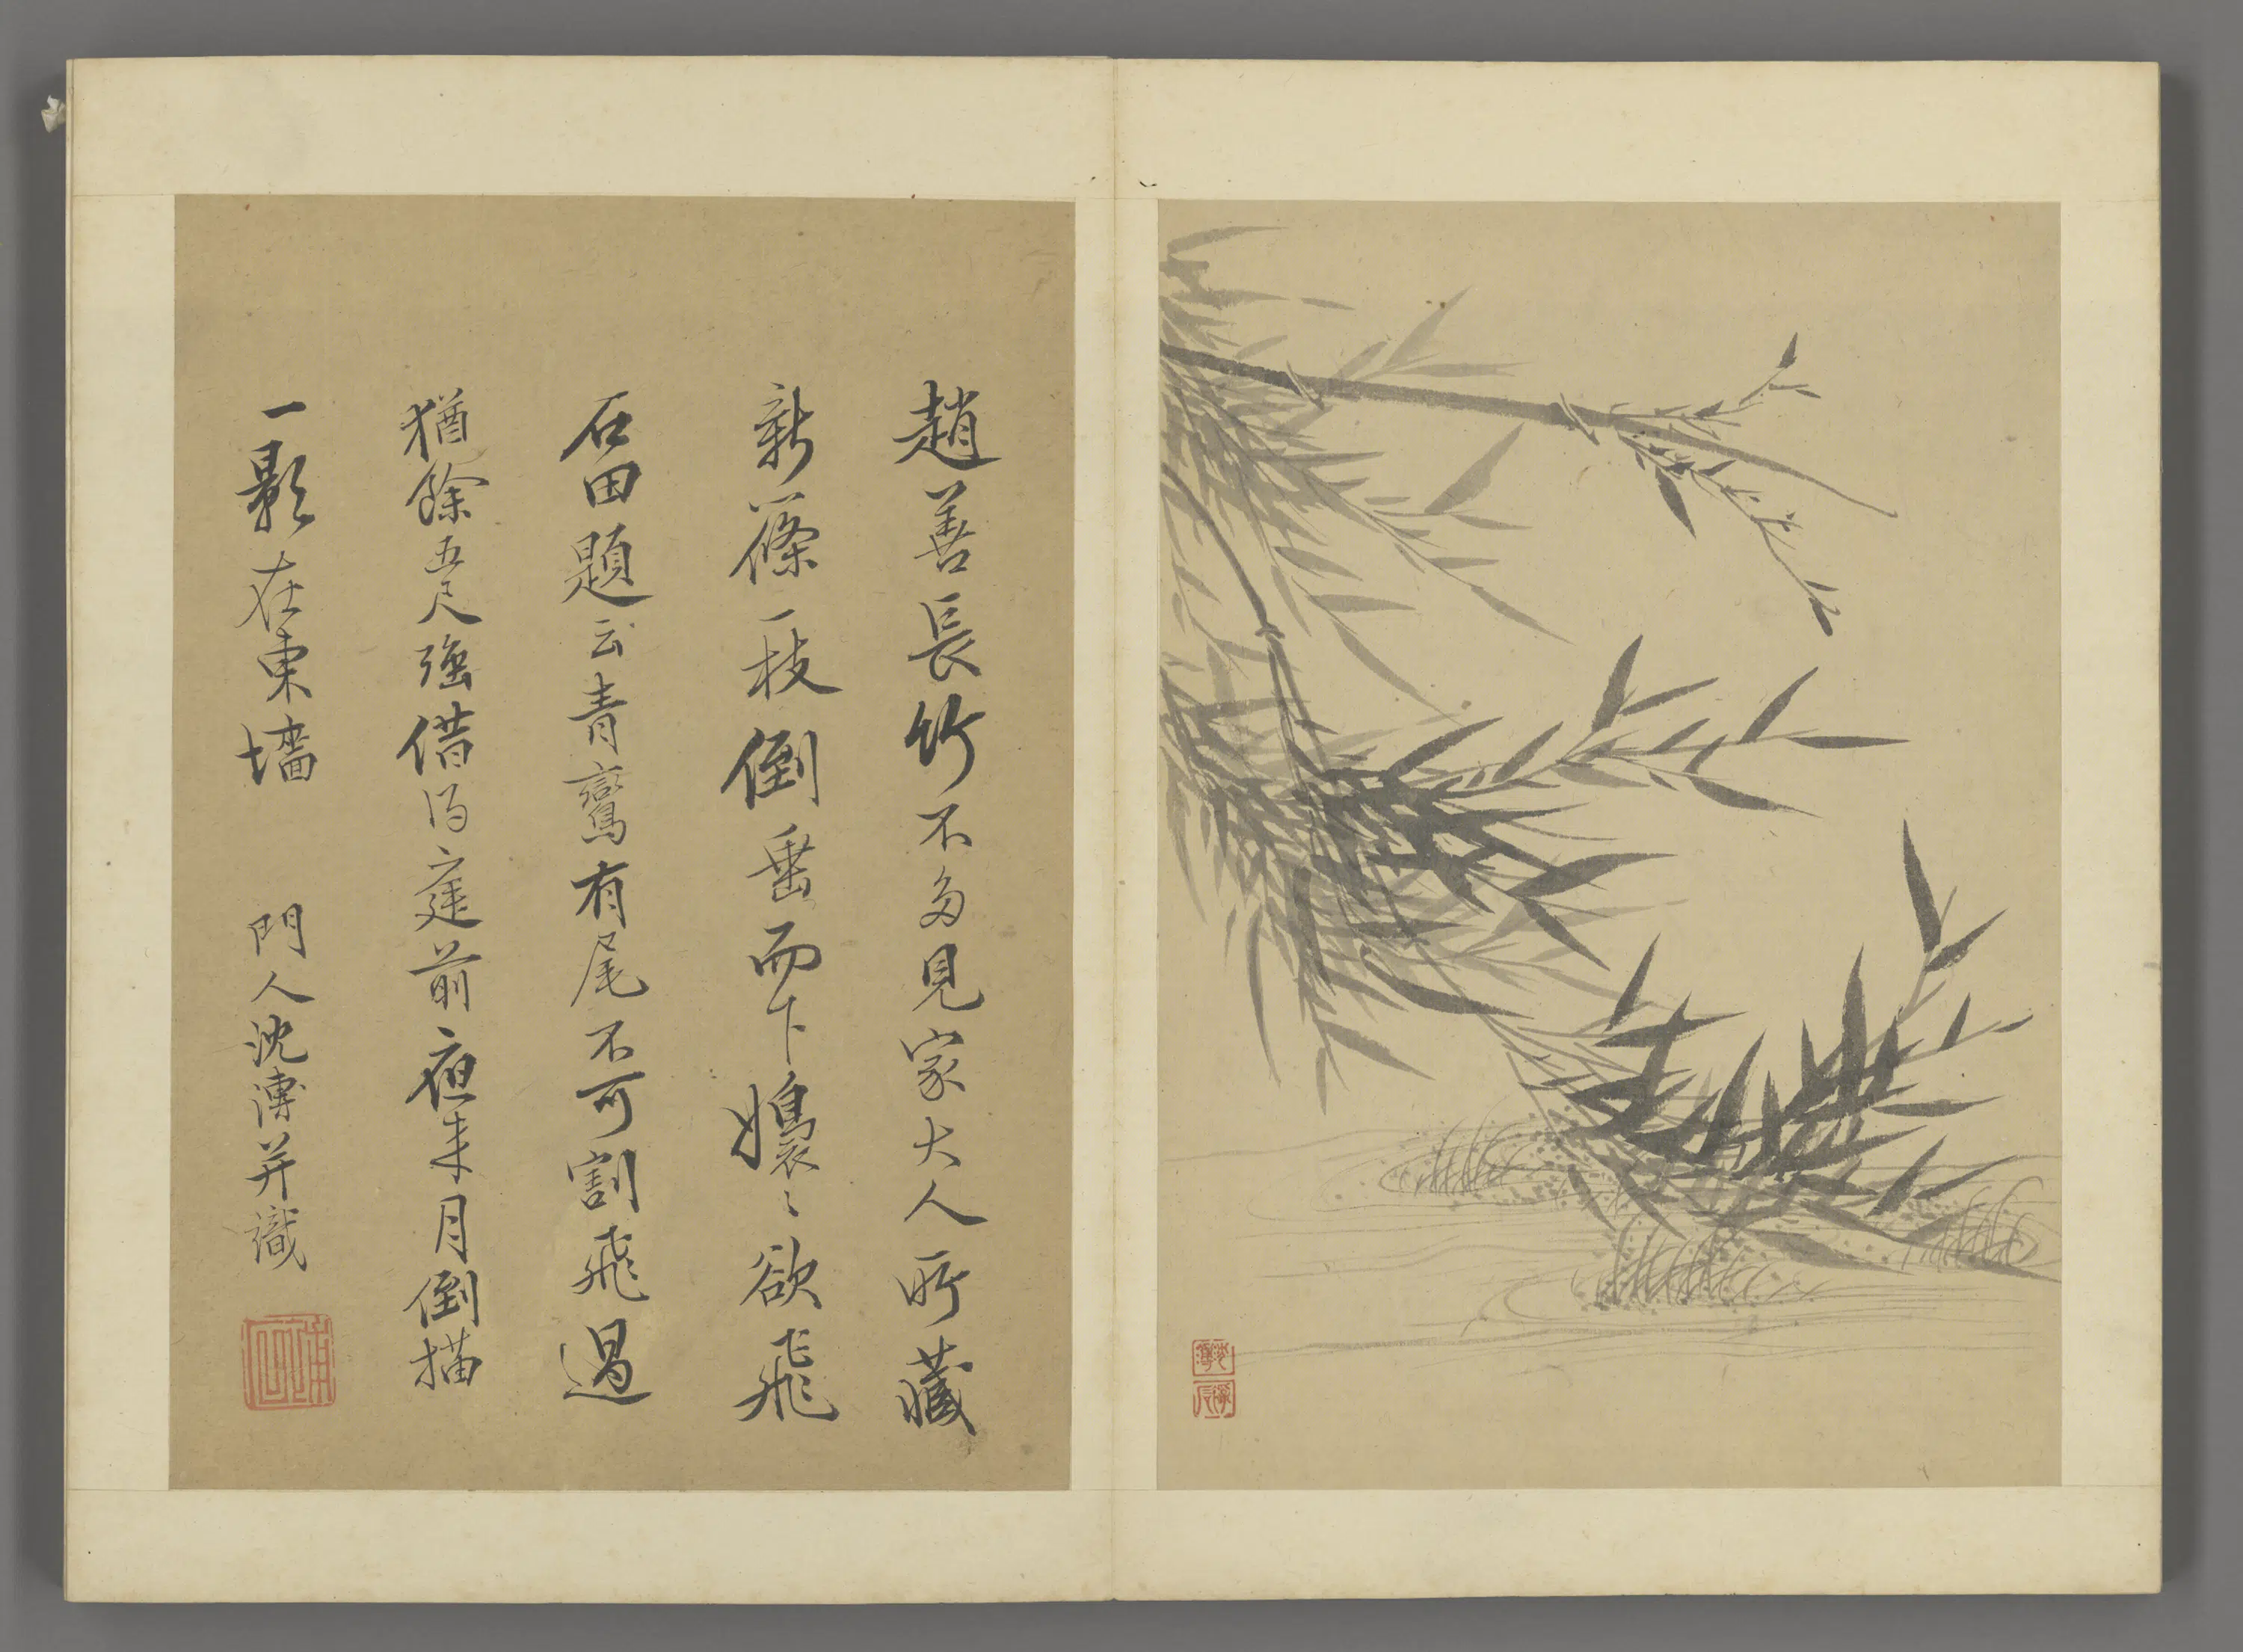 趙善長竹不多見家大人所藏
新篠一枝倒垂而下嬝〻欲飛
石田題云青鸞有尾不可割飛過
猶餘五尺強借得庭前夜來月倒描
一影在東墻 門人沈溥并識